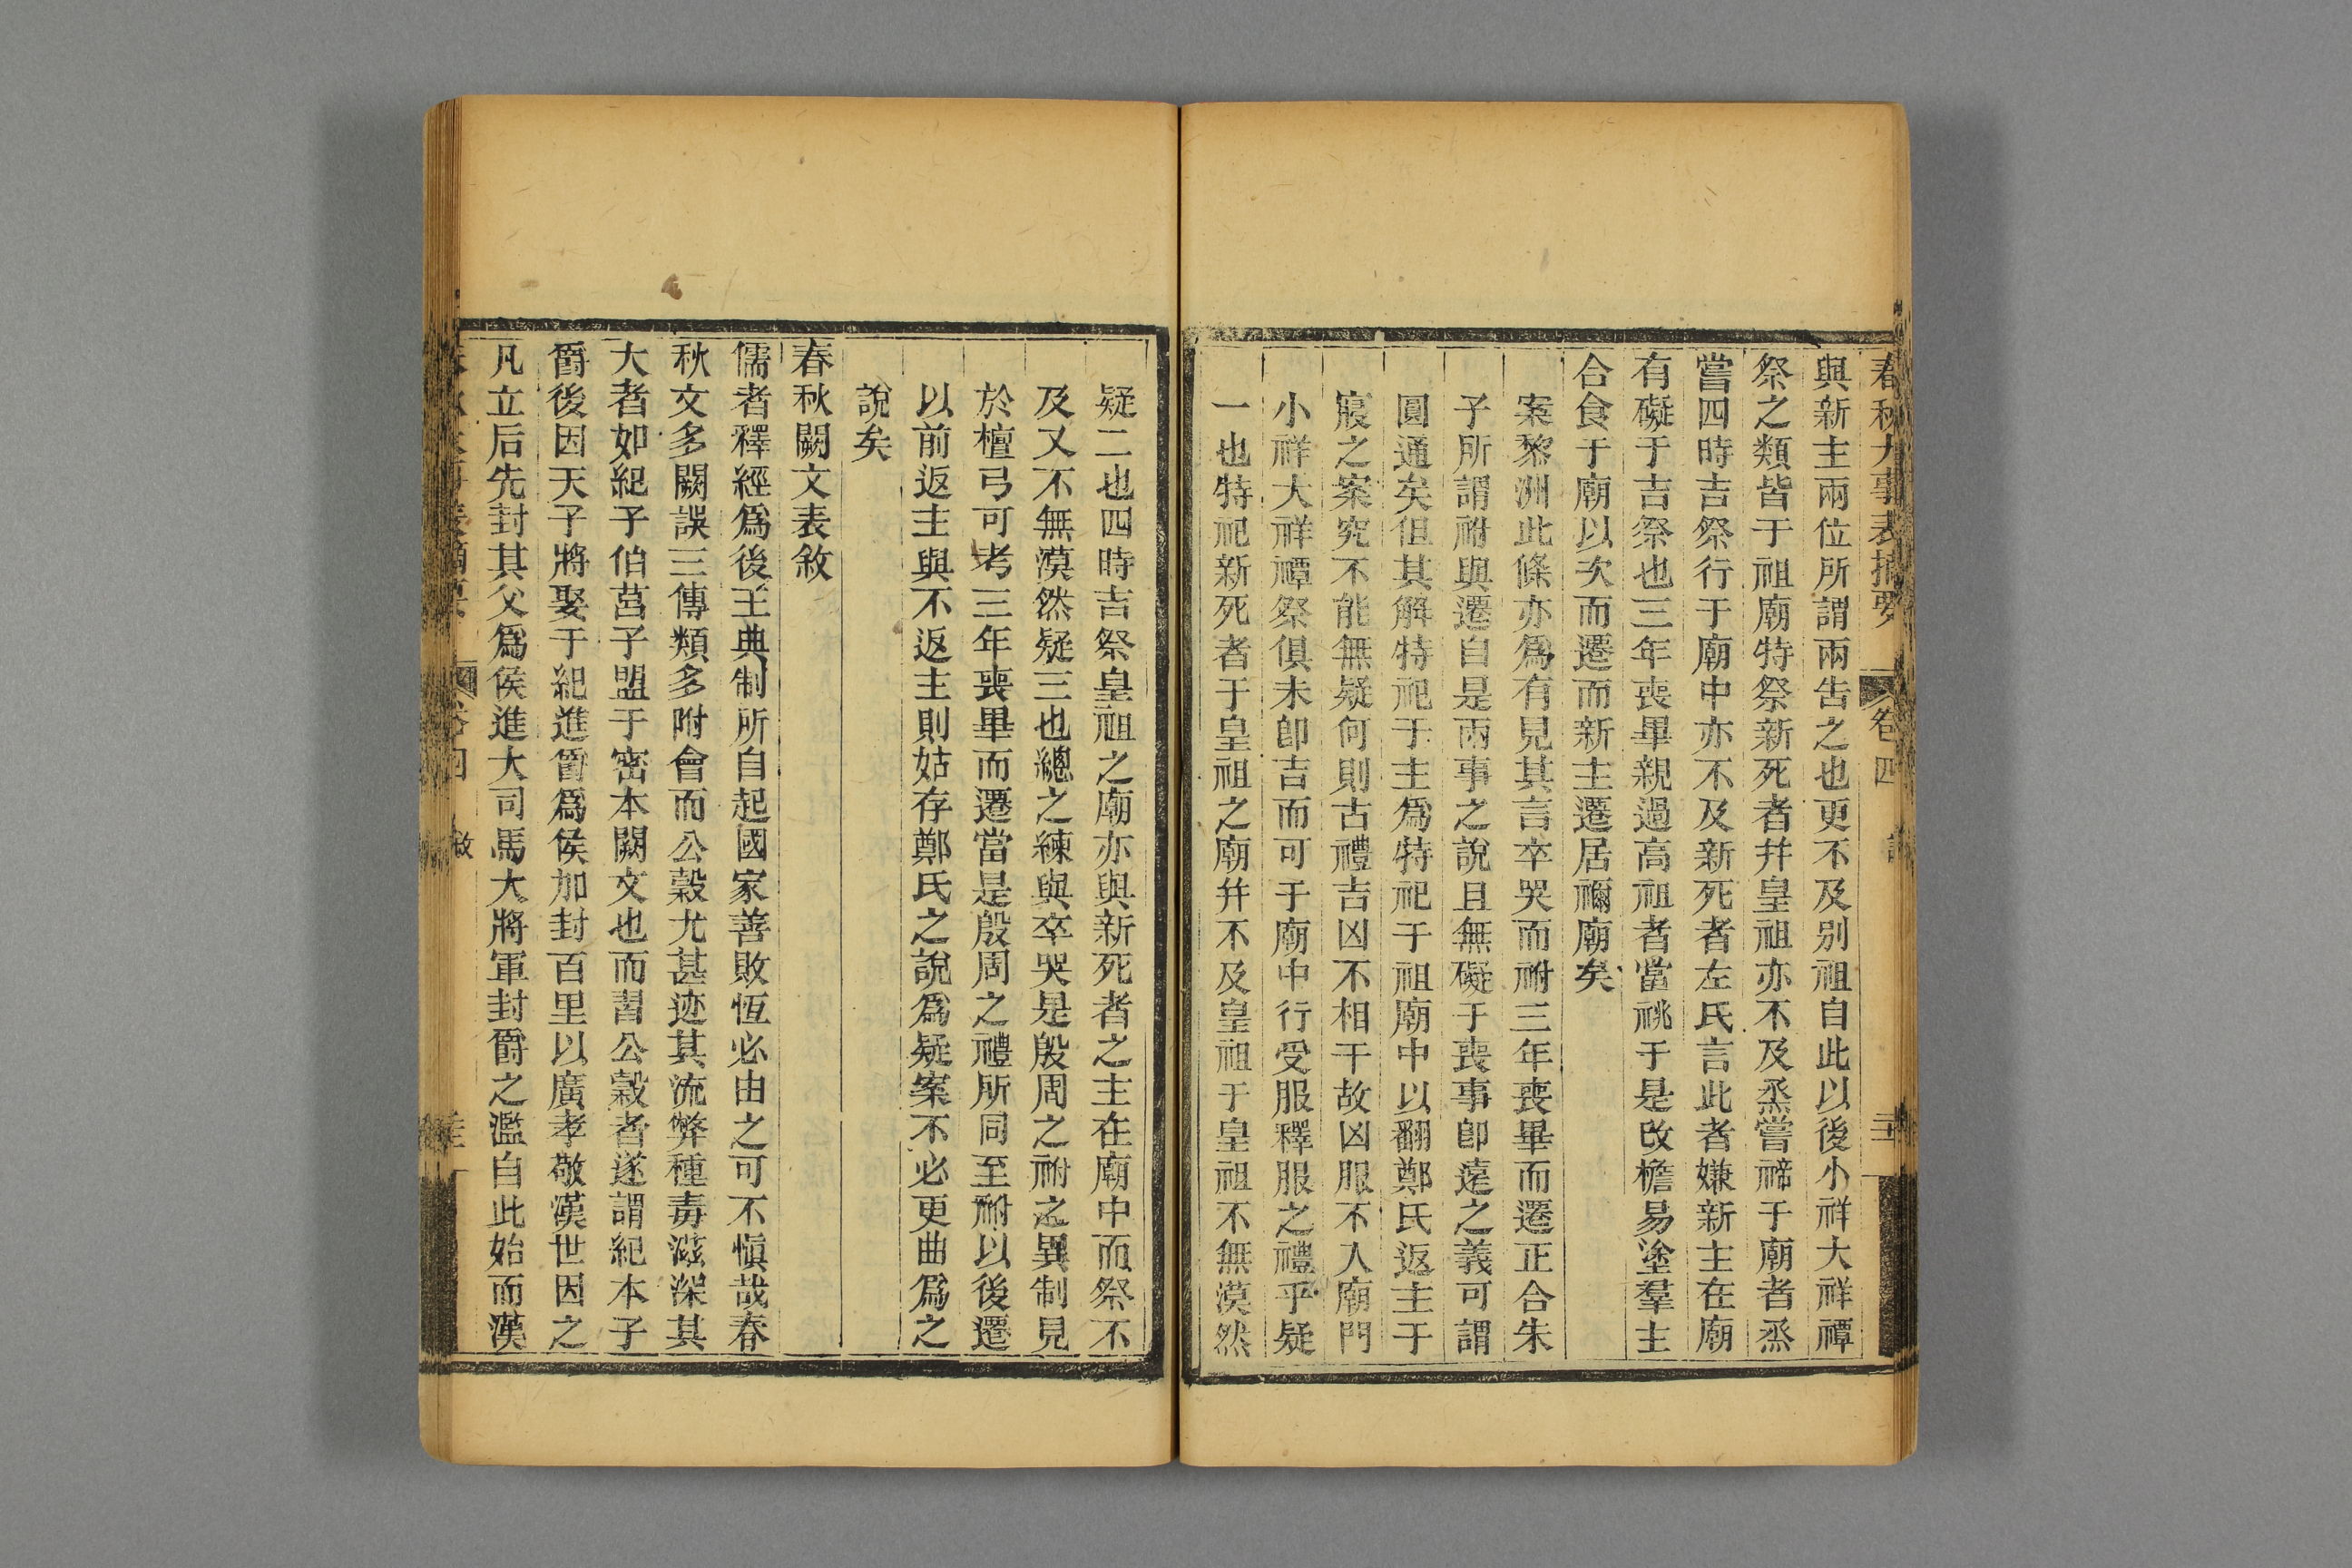 春秋大事表摘要 卷四
與新主兩位所謂兩告之也更不及别祖自此以後小祥大祥禫
祭之類皆于祖廟特祭新死者幷皇祖亦不及烝嘗禘于廟者烝
嘗四時吉祭行于廟中亦不及新死者左氏言此者嫌新主在廟
有礙于吉祭也三年喪畢親過高祖者當祧于是改檐易塗羣主
合食于廟以次而遷而新主遷居禰廟矣
案黎洲此條亦爲有見其言卒哭而祔三年喪畢而遷正合朱
子所謂祔與遷自是兩事之說且無礙于喪事卽遠之義可謂
圓通矣但其解特祀于主爲特祀于祖廟中以翻鄭氏返主于
寢之案究不能無疑何則古禮吉凶不相干故凶服不入廟門
小祥大祥禫祭俱未卽吉而可于廟中行受服釋服之禮乎疑
一也特祀新死者于皇祖之廟幷不及皇祖于皇祖不無漠然
疑二也四時吉祭皇祖之廟亦與新死者之主在廟中而祭不
及又不無漠然疑三也總之練與卒哭是殷周之祔之異制見
於檀弓可考三年喪畢而遷當是殷周之禮所同至祔以後遷
以前返主與不返主則姑存鄭氏之說爲疑案不必更曲爲之
說矣
春秋闕文表敘
儒者釋經爲後王典制所自起國家善敗恆必由之可不愼哉春
秋文多闕誤三傳類多附會而公穀尤甚迹其流弊種毒滋深其
大者如紀子伯莒子盟于密本闕文也而習公穀者遂謂紀本子
爵後因天子將娶于紀進爵爲侯加封百里以廣孝敬漢世因之
凡立后先封其父爲侯進大司馬大將軍封爵之濫自此始而漢